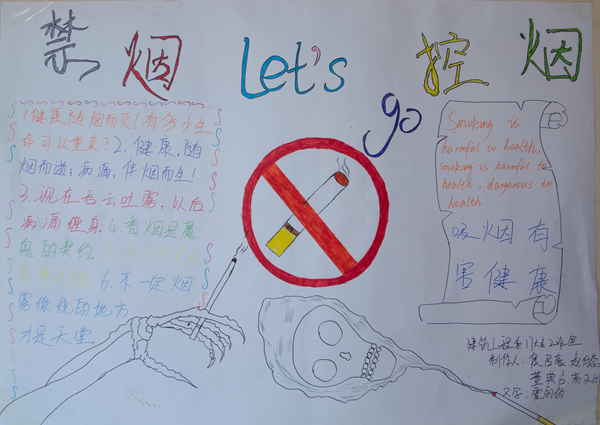 禁烟 Let's go 控烟
1.健康随烟而灭!有多少生
命可以重来?2.健康,随
烟而逝;病痛,伴烟而生!
3.现在吞云吐雾,以后
病痛缠身.4.香烟是魔
鬼的契约.
6.不一定烟
雾缭绕的地方
才是天堂
Smoking is
harmful to health,
smoking is harmful to
health, dangrous to
health
吸烟有
害健康
建筑工程系
制作人:
文字: